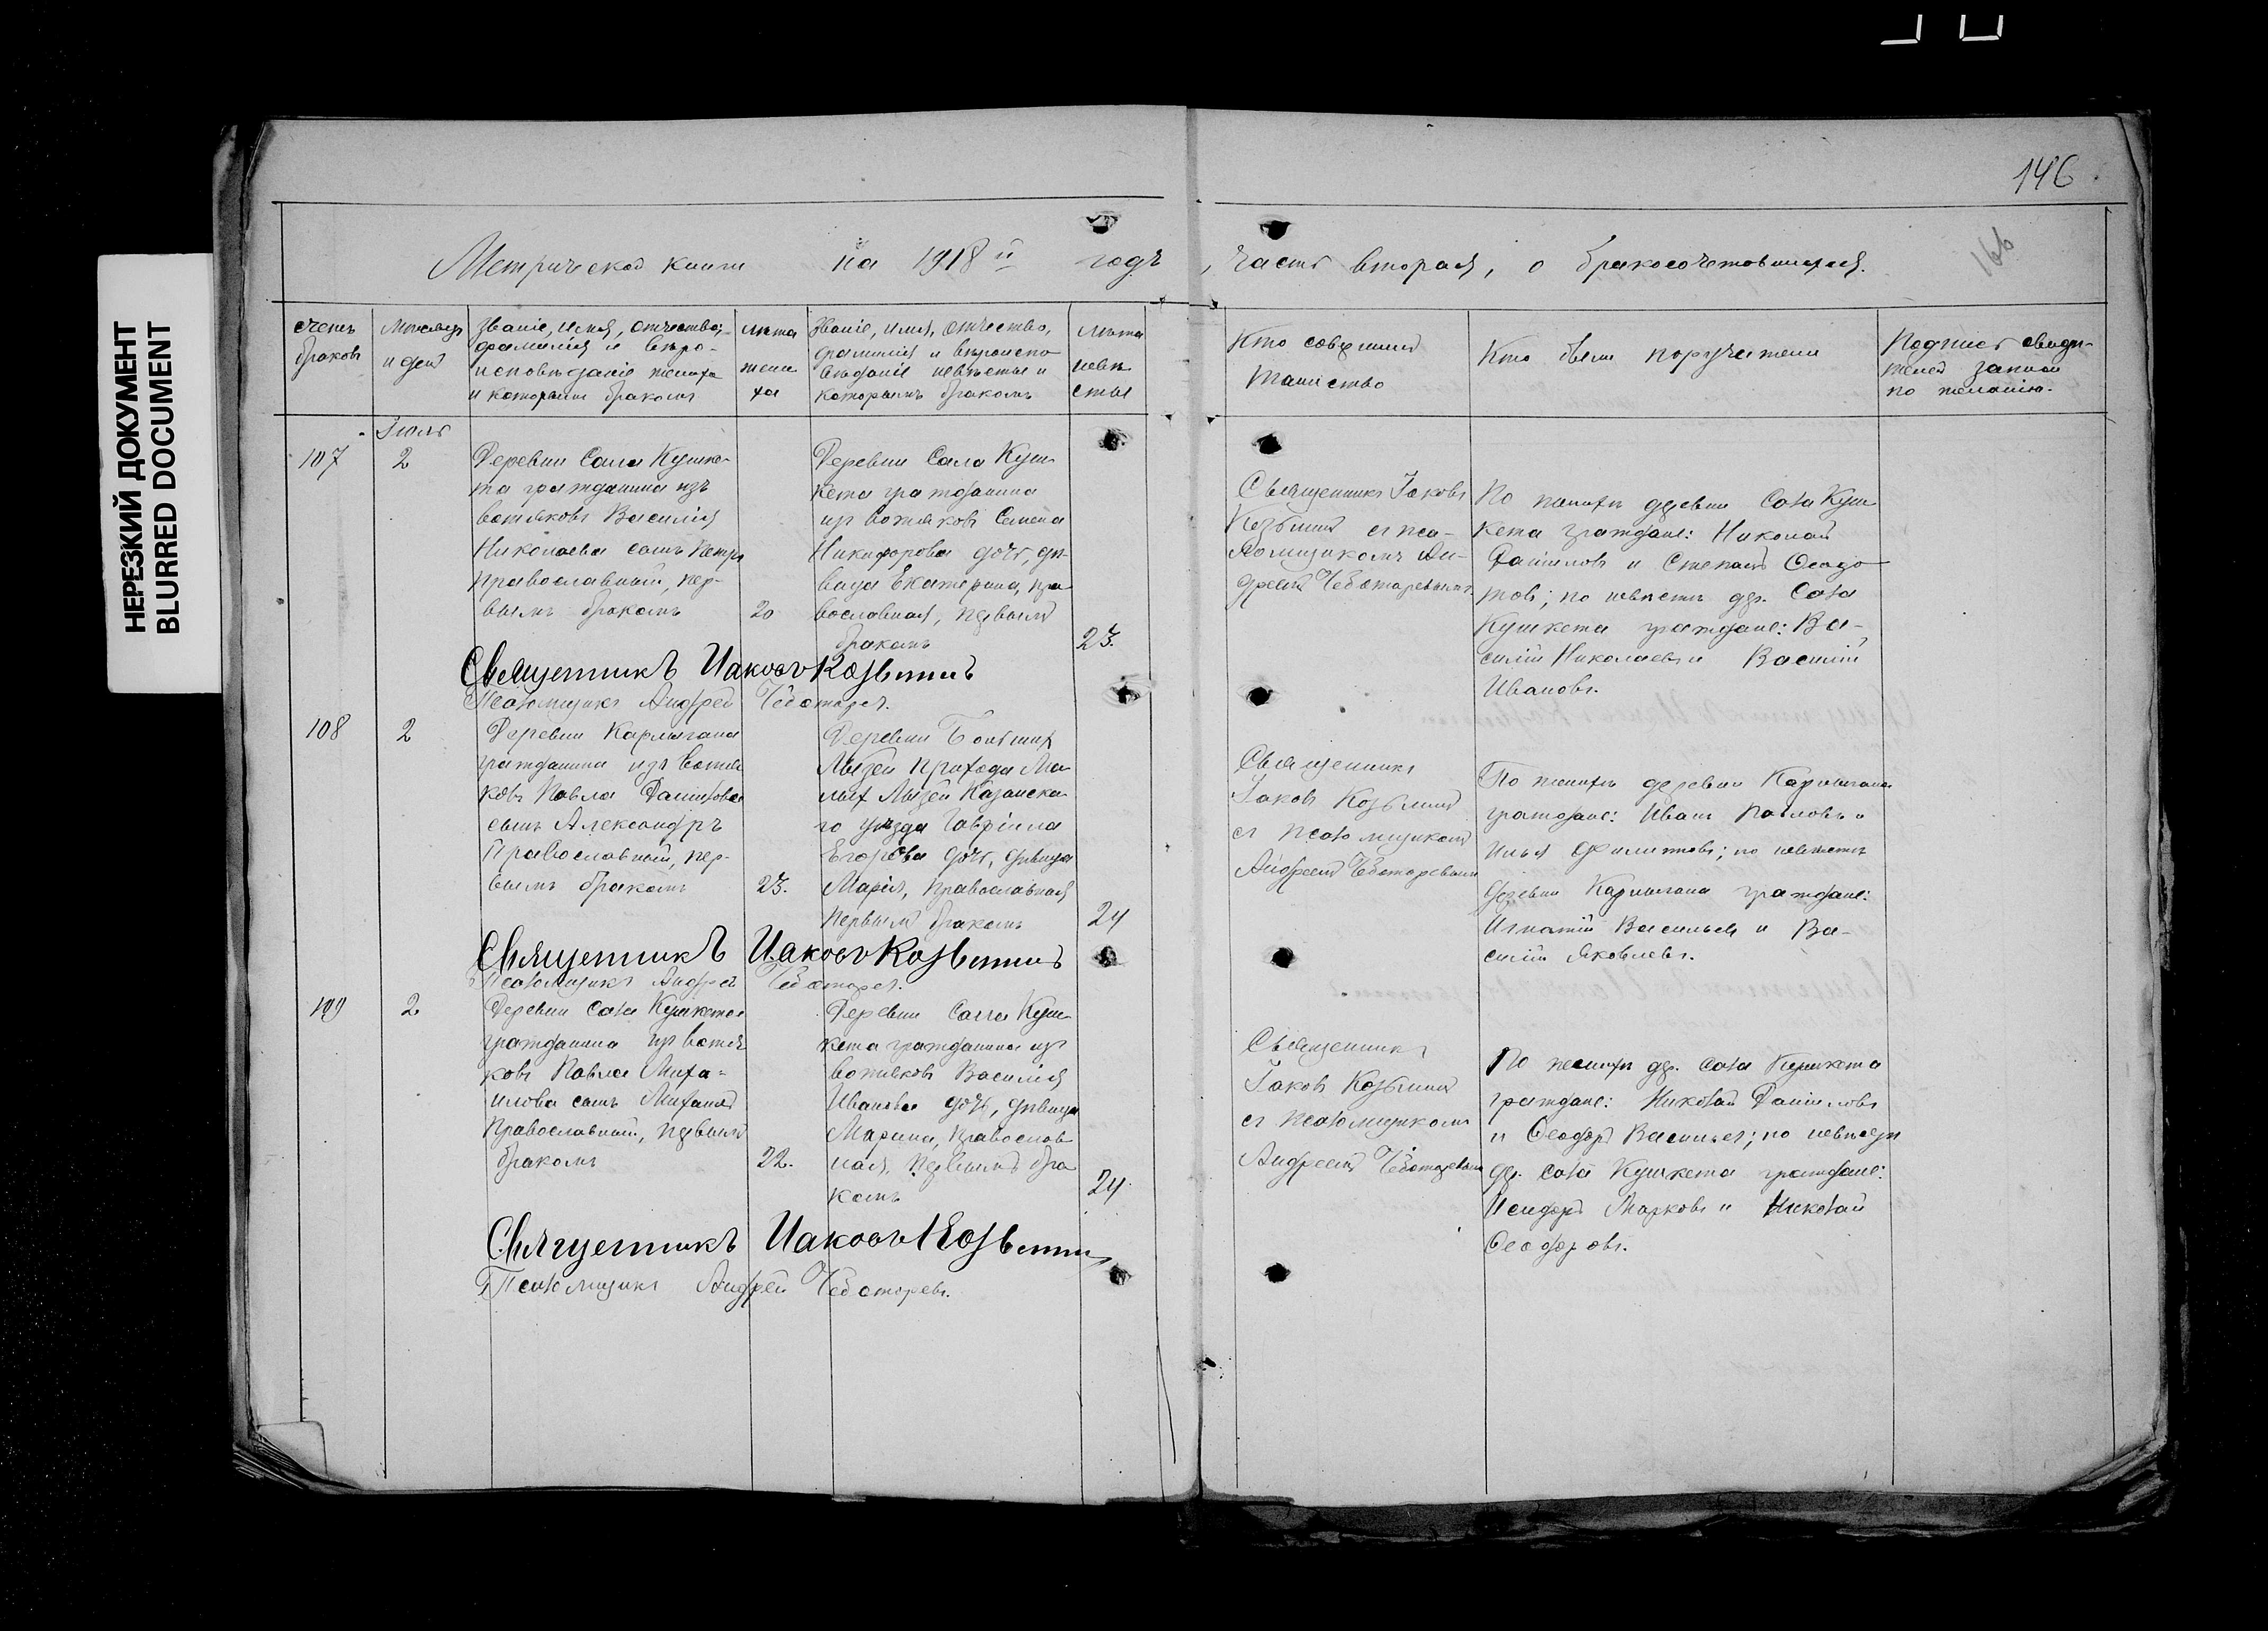 НЕРЕЗКИЙ ДОКУМЕНТ
BLURRED DOCUMENT
146
166
Метрической книги на 1918 й годъ, часть вторая, о бракосочетавшихся.
Счетъ браковъ
Мѣсяцъ и день
Званіе, имя, отчество,
фамилія и вѣро-
исповѣданіе жениха
и которымъ бракомъ
Лѣта
жени
ха
Званіе, имя, отчество,
фамилія и вѣроиспо
вѣданіе невѣсты и
которымъ бракомъ
Лѣта
невѣ
сты
Кто совершилъ
таинство
Кто были поручители
Подпись свидѣ-
телей записи
по желанію.
Іюль
107
2
Деревни Сала Кушке-
та гражданина изъ
вотяковъ Василія
Николаева сынъ Петръ
православный, пер-
вымъ бракомъ
20
Деревни Сала Куш
кета гражданина
изъ вотяковъ Семена
Никифорова дочь, дѣ-
вица Екатерина, пра
вославная, первымъ
бракомъ
23.
Священникъ Іаковъ
Козьминъ съ пса-
ломщикомъ Ан-
дреемъ Чеботаревымъ.
По женихѣ деревни Сала Куш
кета граждане: Николай
Даниловъ и Степанъ Ѳеодо
товъ; по невѣстѣ дер. Сала
Кушкета граждане: Ва-
силій Николаевъ и Василій
Ивановъ.
Священникъ Иаковъ Козьминъ
Псаломщикъ Андрей Чеботаревъ.
108
2
Деревни Карлыгана
гражданина изъ вотя
ковъ Павла Данилова
сынъ Александръ
Православный, пер-
вымъ бракомъ
23.
Деревни Большихъ
Лызей прихода Ма
лыхъ Лызей Казанска
го уѣзда Гавріила
Егорова дочь, дѣвица
Марія, православная
первымъ бракомъ
24
Священникъ
Іаковъ Козьминъ
съ псаломщикомъ
Андреемъ Чеботаревымъ
По женихѣ деревни Карлыгана
граждане: Иванъ Павловъ и
Илья Филипповъ; по невѣстѣ
деревни Карлыгана граждане:
Игнатій Васильевъ и Ва-
силій Яковлевъ.
Священникъ Иаковъ Козьминъ
Псаломщикъ Андрей Чеботаревъ.
109
2
Деревни Сала Кушкета
гражданина изъ вотя
ковъ Павла Миха-
илова сынъ Михаилъ
Православный, первымъ
бракомъ
22.
Деревни Сала Куш
кета гражданина изъ
вотяковъ Василія
Иванова дочь, дѣвица
Марина, православ
ная, первымъ бра
комъ
24.
Священникъ
Іаковъ Козьминъ
съ псаломщикомъ
Андреемъ Чеботаревымъ
По женихѣ дер. Сала Кушкета
граждане: Николай Даниловъ
и Ѳеодоръ Васильевъ; по невѣстѣ
дер. Сала Кушкета граждане:
Исидоръ Марковъ и Николай
Ѳеодоровъ.
Священникъ Иаковъ Козьминъ
Псаломщикъ Андрей Чеботаревъ.